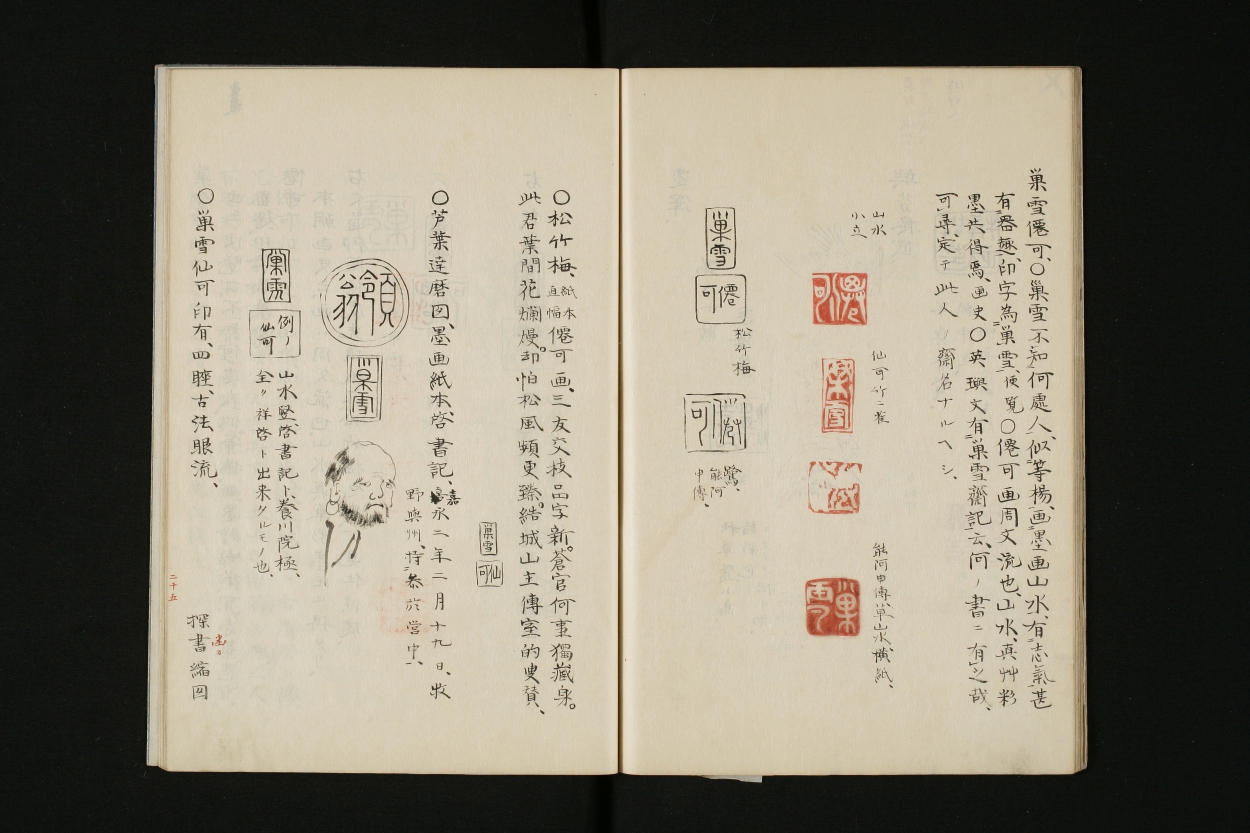 巣雪僊可、〇巣雪不知何處人、似等楊、画墨画山水、有志氣甚
有器趣、印字為巣雪、便覧〇僊可画周文流也、山水、真艸彩
墨共得焉、画史〇英璵文有巣雪齋記云、何ノ書ニ有之哉、
可尋、定テ此人ノ齋名ナルヘシ、
山水
小立
仙可竹二雀
能阿弥申傳草山水、横紙、
巣雪
僊可
松竹梅
僊可
鷺、
能阿
申傳、
〇松竹梅、紙本直幅僊可画、三友交枝品字新。蒼官何事獨藏身。
此君葉間花爛熳。却怕松風頻更臻。結城山主傳室的叟賛、
巣雪
仙可
〇芦葉達磨図、墨画紙本、啓書記、嘉永二年二月十九日、牧
野興州、持参於営中、
領翁
巣雪
例ノ
仙可
山水竪、啓書記ト、養川院極、
全ク祥啓ト出来タルモノ也、
〇巣雪仙可印有、四睡、古法眼流、
探書縮図
二十五